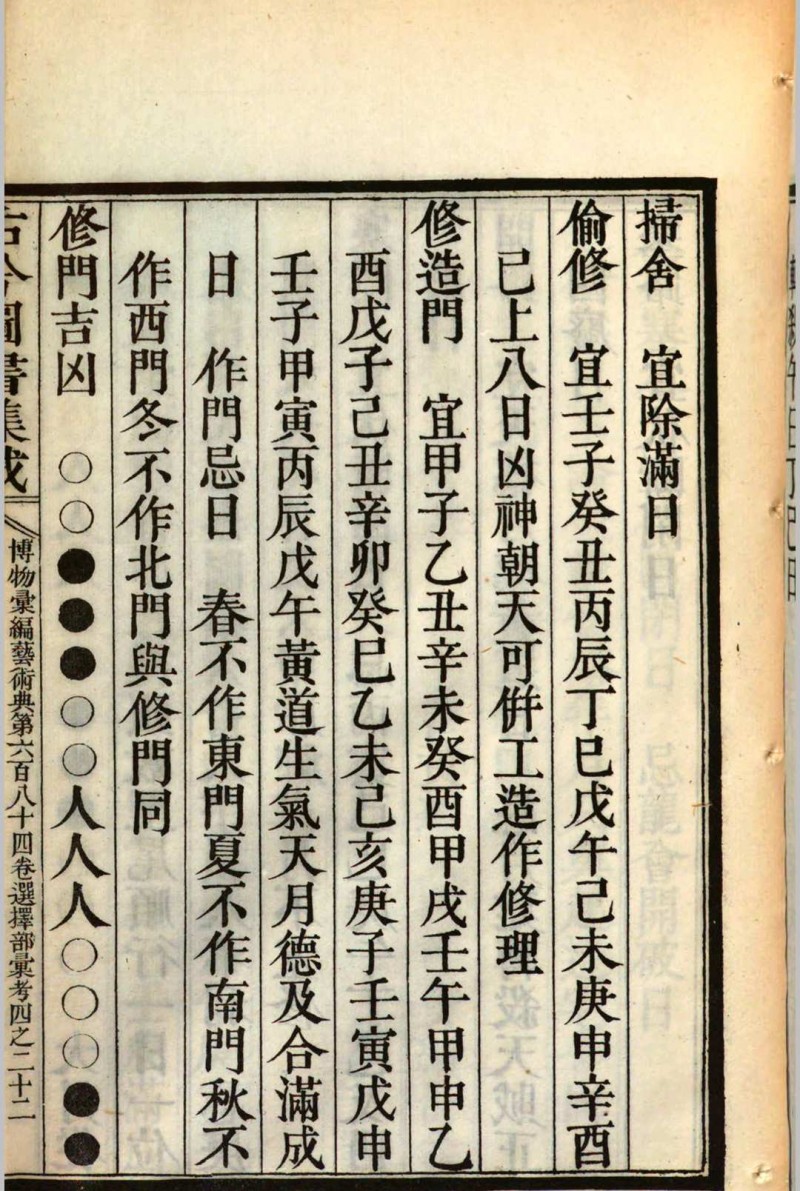 掃舍　宜除滿日
偷修　宜壬子癸丑丙辰丁巳戊午己未庚申辛酉
已上八日凶神朝天可倂工造作修理
修造門　宜甲子乙丑辛未癸酉甲戌壬午甲申乙
酉戊子己丑辛卯癸巳乙未己亥庚子壬寅戊申
壬子甲寅丙辰戊午黃道生氣天月德及合滿成
日　作門忌日　春不作東門夏不作南門秋不
作西門冬不作北門與修門同
修門吉凶　○○●●●○○人人人○○○●●
古今圖書集成
博物彙編藝術典第六百八十四卷選擇部彙考四之二十二